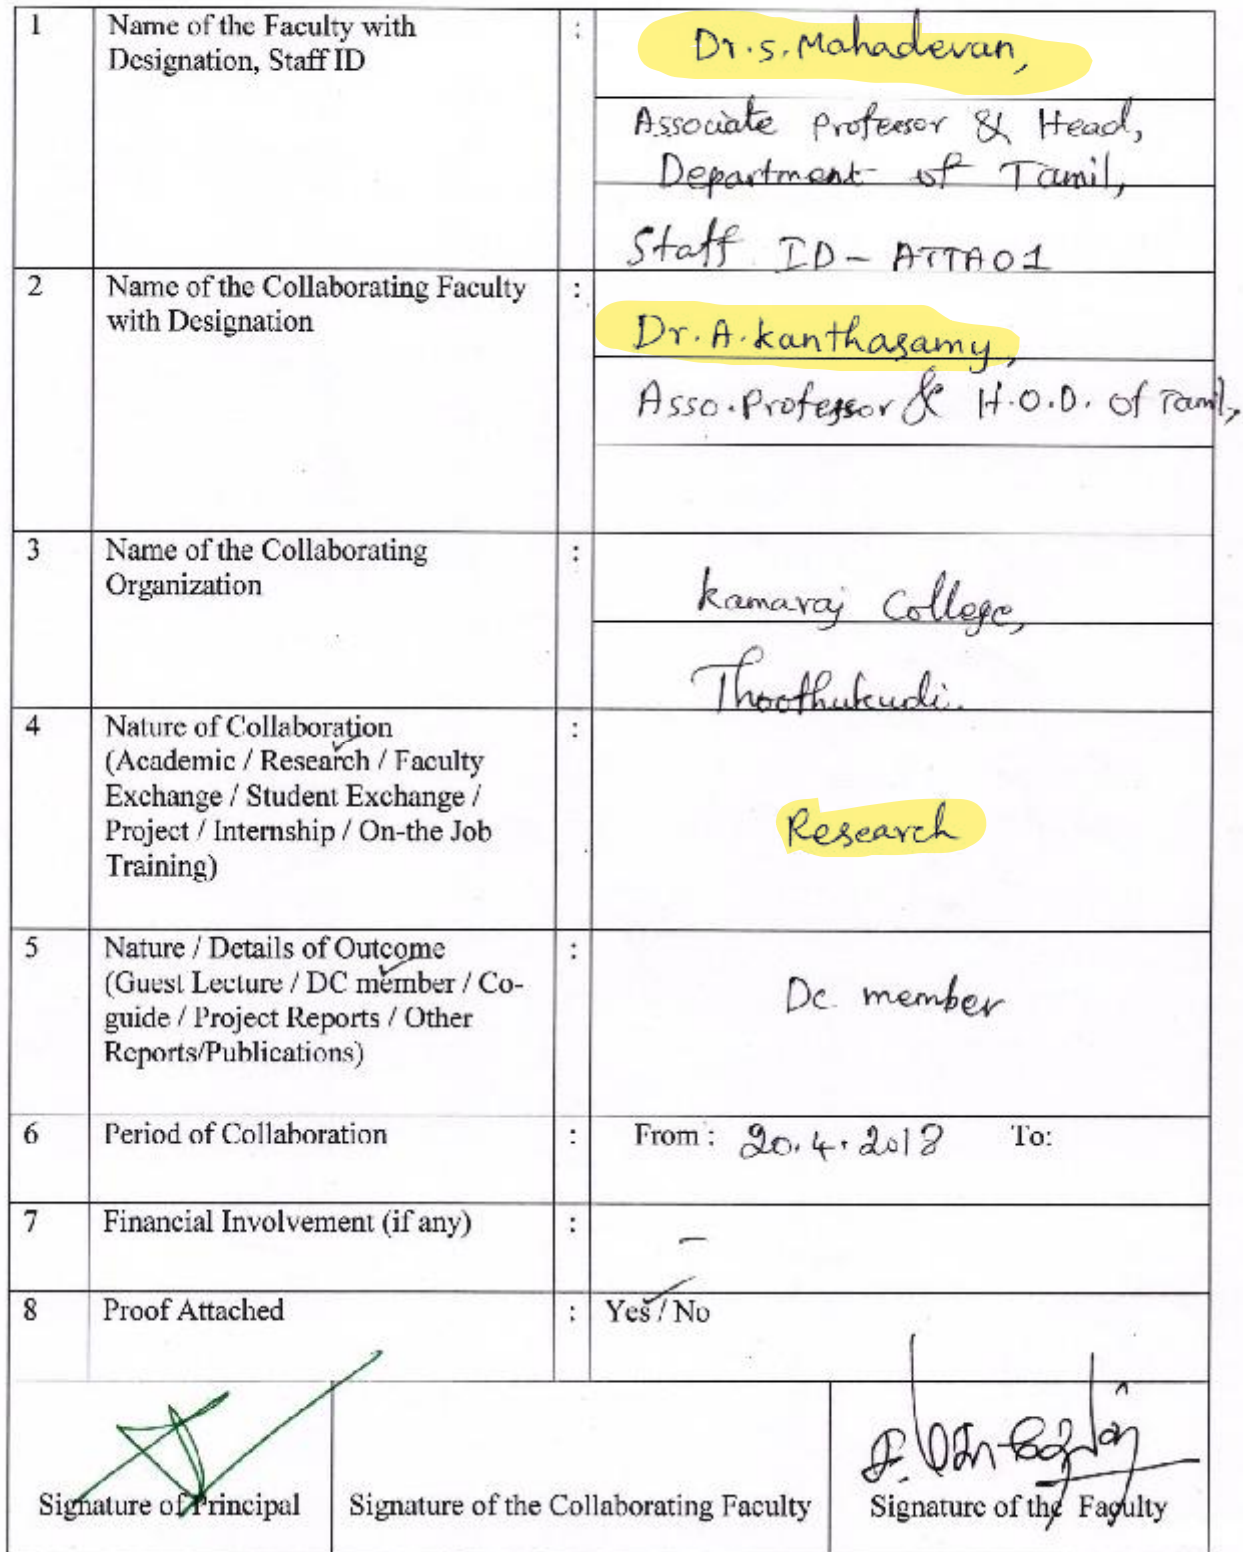 1 Name of the Faculty with : Dr.S.Mahadevan,
Designation, Staff ID
Associate Professor & Head,
Department of Tamil,
Staff ID - ATTA01
2 Name of the Collaborating Faculty :
with Designation Dr.A.kanthasamy,
Asso.Professor & H.O.D. of Tamil,
3 Name of the Collaborating :
Organization kamaraj College,
Thoothukudi.
4 Nature of Collaboration :
(Academic / Research / Faculty
Exchange / Student Exchange /
Project / Internship / On-the Job Research
Training)
5 Nature / Details of Outcome :
(Guest Lecture / DC member / Co- Dc member
guide / Project Reports / Other
Reports/Publications)
6 Period of Collaboration : From : 20.4.2018 To:
7 Financial Involvement (if any) : -
8 Proof Attached : Yes / No
Signature of Principal Signature of the Collaborating Faculty Signature of the Faculty